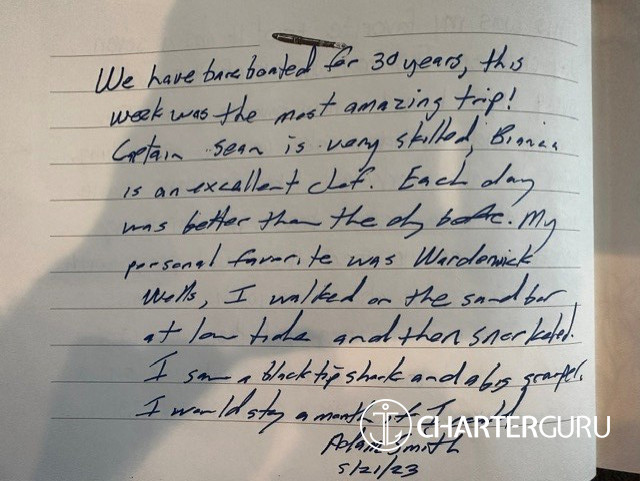 We have bareboated for 30 years, this
week was the most amazing trip!
Captain Sean is very skilled, Bianca
is an excellent chef. Each day
was better than the day before. My
personal favorite was Warderwick
Wells, I walked on the sand bar
at low tide and then snorkeled.
I saw a black tip shark and a big
I would stay a month if I could!
CHARTERGURU
Adam Smith
5/21/23